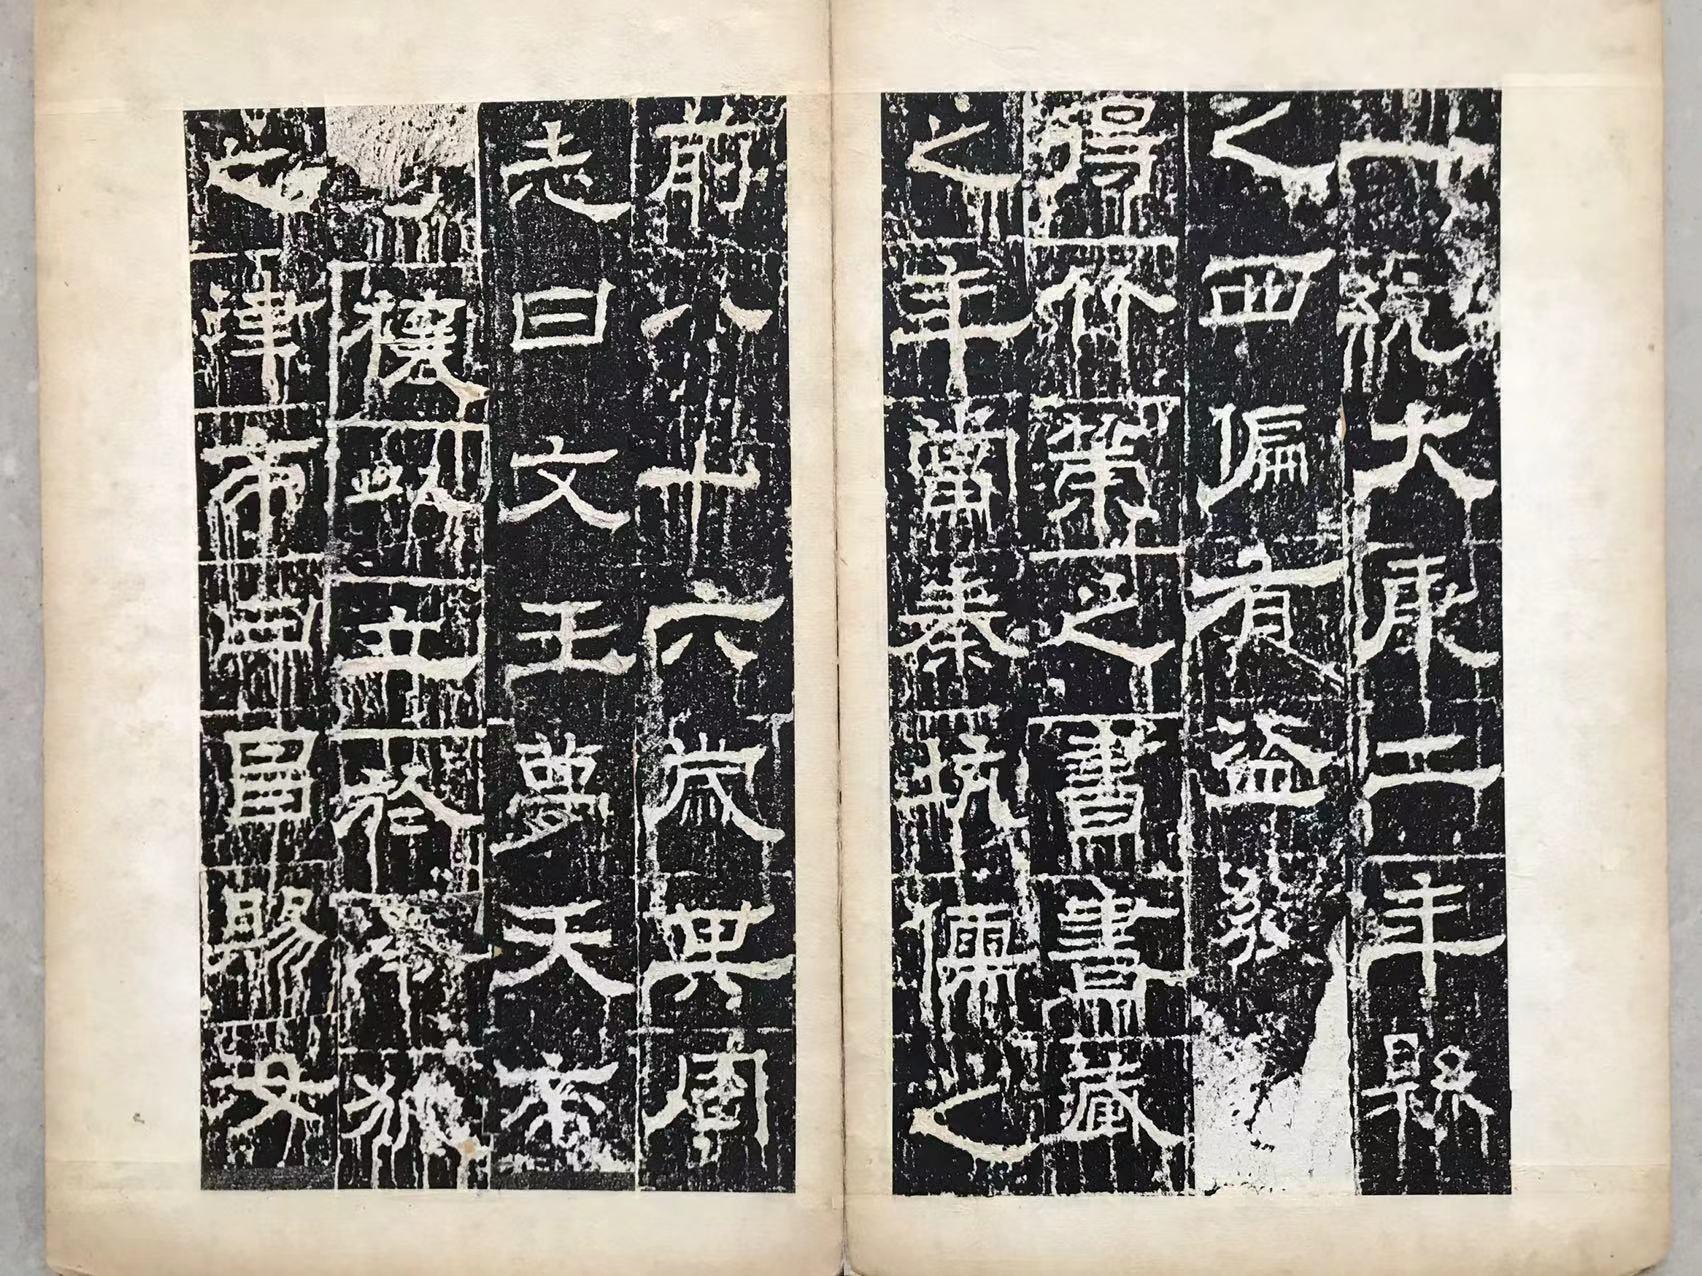 一統大康二年縣
之西偏有盜發
得竹策之書書藏
之年當秦坑儒之
前八十六歲其周
志曰文王夢天帝
玄禳以立於令狐
之津帝曰昌賜汝